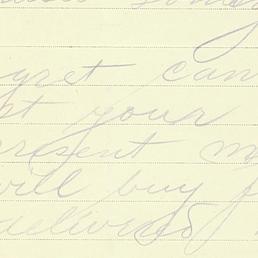 gret can
pt your
present m
will buy f
delivered